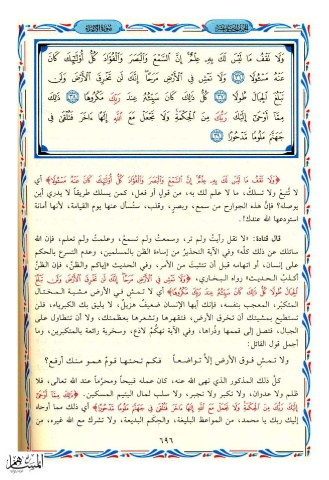 وَلَا تَقْفُ مَا لَيْسَ لَكَ بِهِ عِلْمٌ إِنَّ السَّمْعَ وَالْبَصَرَ وَالْفُؤَادَ كُلُّ أُولَٰئِكَ كَانَ
عَنْهُ مَسْئُولًا ﴿٣٦﴾ وَلَا تَمْشِ فِي الْأَرْضِ مَرَحًا إِنَّكَ لَن تَخْرِقَ الْأَرْضَ وَلَن
تَبْلُغَ الْجِبَالَ طُولًا ﴿٣٧﴾ كُلُّ ذَٰلِكَ كَانَ سَيِّئُهُ عِندَ رَبِّكَ مَكْرُوهًا ﴿٣٨﴾ ذَٰلِكَ
مِمَّا أَوْحَىٰ إِلَيْكَ رَبُّكَ مِنَ الْحِكْمَةِ وَلَا تَجْعَلْ مَعَ اللَّهِ إِلَٰهًا ءَاخَرَ فَتُلْقَىٰ فِي
جَهَنَّمَ مَلُومًا مَّدْحُورًا ﴿٣٩﴾
﴿وَلَا تَقْفُ مَا لَيْسَ لَكَ بِهِ عِلْمٌ إِنَّ السَّمْعَ وَالْبَصَرَ وَالْفُؤَادَ كُلُّ أُولَٰئِكَ كَانَ عَنْهُ مَسْئُولًا﴾ أي
لا تتبع ولا تسلك، ما لا علم لك به، من قول أو فعل، كمن يسلك طريقاً لا يدري أين
يوصله؟ فإن هذه الجوارح من سمع، وبصر، وقلب، ستسأل عنها يوم القيامة، لأنها أمانة
استودعها الله عندك!.
قال قتادة: «لا تقل رأيت ولم تر، وسمعت ولم تسمع، وعلمت ولم تعلم، فإن الله
سائلك عن ذلك كله» وفي الآية التحذير من إساءة الظن بالمسلمين، وعدم التسرع بالحكم
على إنسان، أو اتهامه قبل أن تتثبت من الأمر، وفي الحديث «إياكم والظن، فإن الظن
أكذب الحديث» رواه البخاري، ﴿وَلَا تَمْشِ فِي الْأَرْضِ مَرَحًا إِنَّكَ لَن تَخْرِقَ الْأَرْضَ وَلَن تَبْلُغَ
الْجِبَالَ طُولًا كُلُّ ذَٰلِكَ كَانَ سَيِّئُهُ عِندَ رَبِّكَ مَكْرُوهًا﴾ أي لا تمش في الأرض مشية المختال
المتكبر، المعجب بنفسه، فإنك أيها الإنسان ضعيف هزيل، لا يليق بك الكبرياء، فلن
تستطيع بمشيتك أن تخرق الأرض، فتقهرها وتشعرها بعظمتك، ولا أن تتطاول على
الجبال، فتصل إلى قممها وذراها، وفي الآية تهكم لاذع، وسخرية رائعة بالمتكبرين، وما
أجمل قول القائل:
ولا تمش فوق الأرض إلا تواضعاً فكم تحتها قوم همو منك أرفع؟
كل ذلك المذكور الذي نهى الله عنه، كان عمله قبيحاً ومحرماً عند الله تعالى، فلا
ظلم ولا عدوان، ولا تكبر ولا تجبر، ولا سلب لمال اليتيم المسكين. ﴿ذَٰلِكَ مِمَّا أَوْحَىٰ
إِلَيْكَ رَبُّكَ مِنَ الْحِكْمَةِ وَلَا تَجْعَلْ مَعَ اللَّهِ إِلَٰهًا ءَاخَرَ فَتُلْقَىٰ فِي جَهَنَّمَ مَلُومًا مَّدْحُورًا﴾ أي ذلك مما أوحاه
إليك ربك يا محمد، من المواعظ البليغة، والحكم البديعة، ولا تشرك مع الله غيره، من
٦٩٦